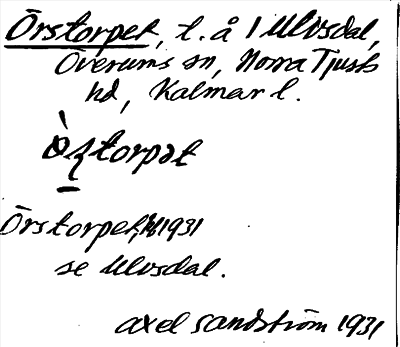 Örstorpet, l. å 1 Ulvsdal,
Överums sn, Norra Tjusts
hd, Kalmar l.
torpət
Örstorpet, 1931
se Ulvsdal.
axel sandström 1931